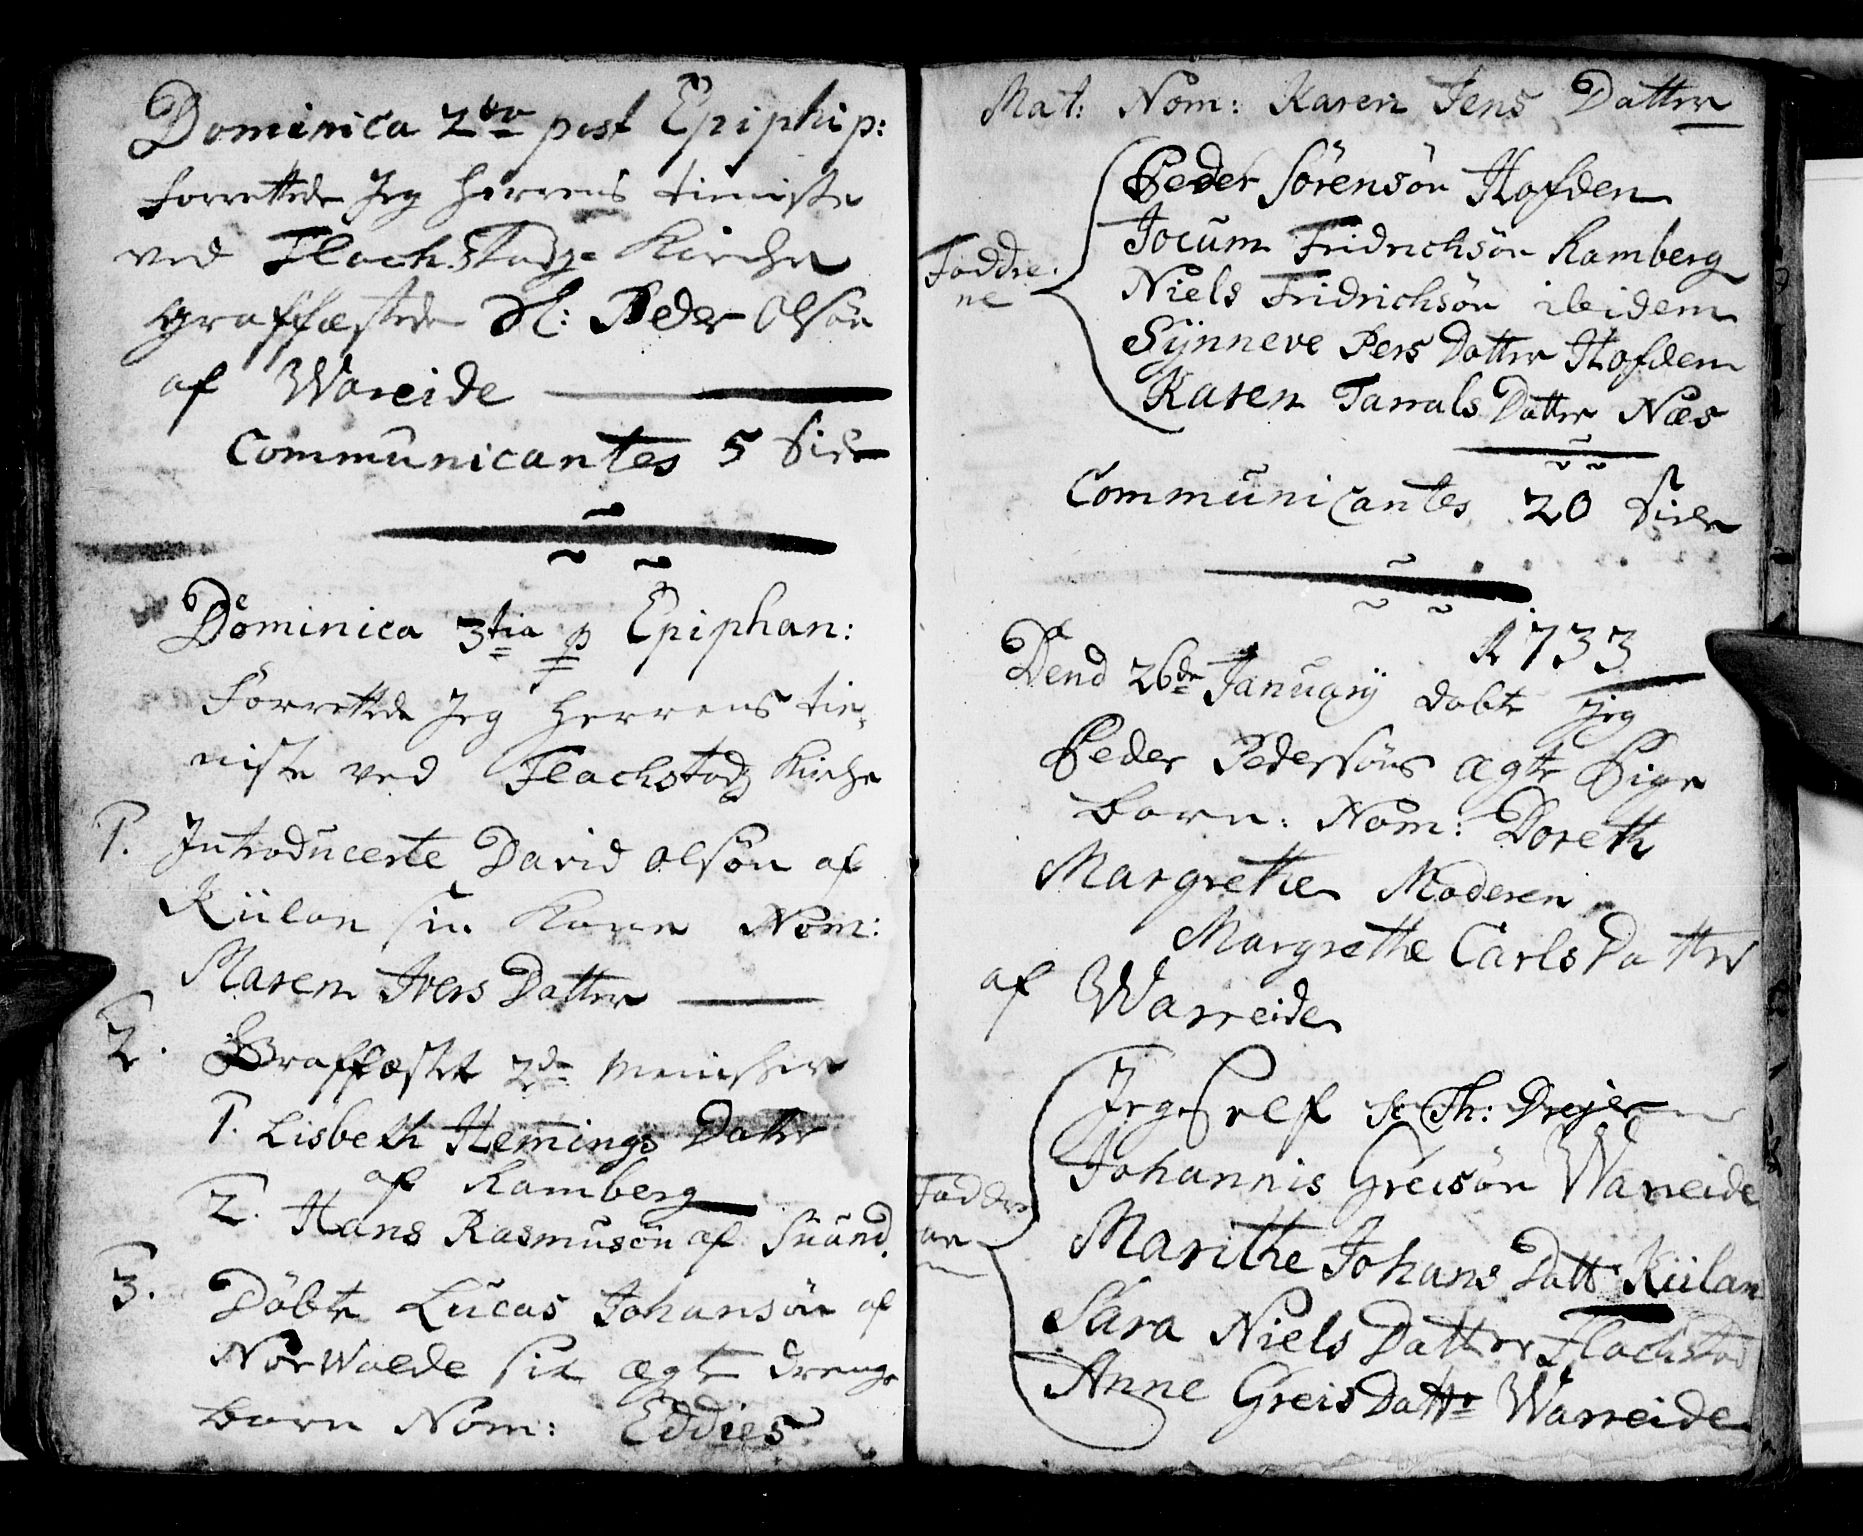 Dominica 2da post Epiphip:
forrettede Jeg Herrens tieniste
ved Flachstadz Kirche
graffæstede Sl: Peder Olsön
af Wareide
Communicantes 5 Siele
Dominica 3tia p Epiphan:
Forrettede Jeg Herrens tie-
niste ved Flachstadz Kirche
1. Introducerte David Olsön af
Kiilan sin Kone Nom:
Maren Ivers Datter
2. Graffæstet 2de Menisker
1. Lisbeth Hemings Datter
af Ramberg
2. Hans Rasmusön af Suund.
3. Döbte Lucas Johansön af
NorWalde sit ægte drenge
barn Nom: Eddies
Mat: Nom: Karen Jens Datter
Peder Sörensön Hofden
Jocum Fridrichsön Ramberg
Faddre-
ne
Niels Fridrichsön ibidem
Synneve Pers Datter Hofden
Karen Tarrals Datter Næs
Communicantes 20 Siele
A 1733
Dend 26de January dobte jeg
Peder Pedersöns ægte Pige
barn: Nom: Doreth
Margrethe Moderen
Margrethe Carls Datter
af Warreide
Jeg Self Th: Drejer
Johannis Greisön Warreide
Faddre
ne
Marithe Johans Datt Kiilan
Sara Niels Datter Flachstad
Anne Greis Dattr Warreide